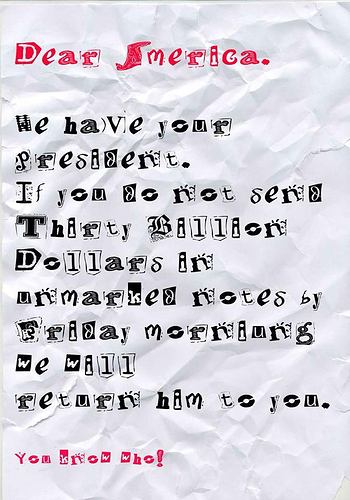 Dear America.
We have your
president.
If you do not send
Thirty Billion
Dollars in
unmarked notes by
Friday morniung
we will
return him to you.
You know who!